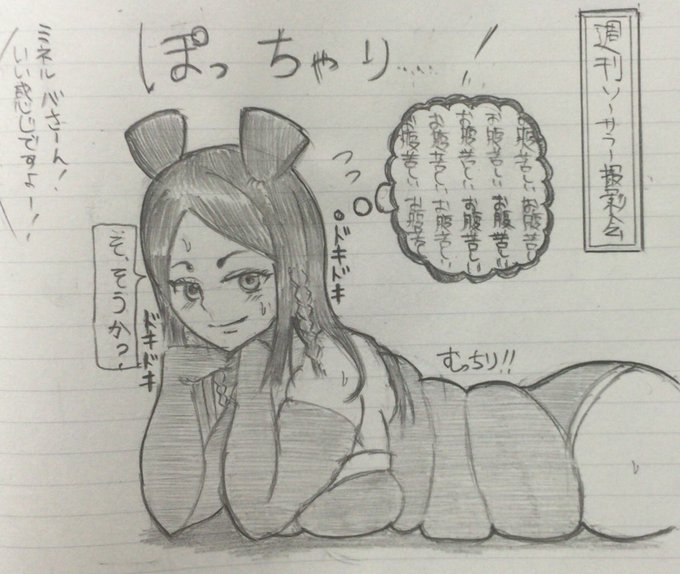 週刊ソーサラー撮影会
ぽっちゃり……
お腹苦しい お腹苦しい
お腹苦しい お腹苦しい
お腹苦しい お腹苦しい
お腹苦しい お腹苦しい
お腹苦しい お腹苦
ミネルバさーん！
いい感じですよー！！
そ、そうかっ、
ドキドキ
ドキドキ
むっちり!!